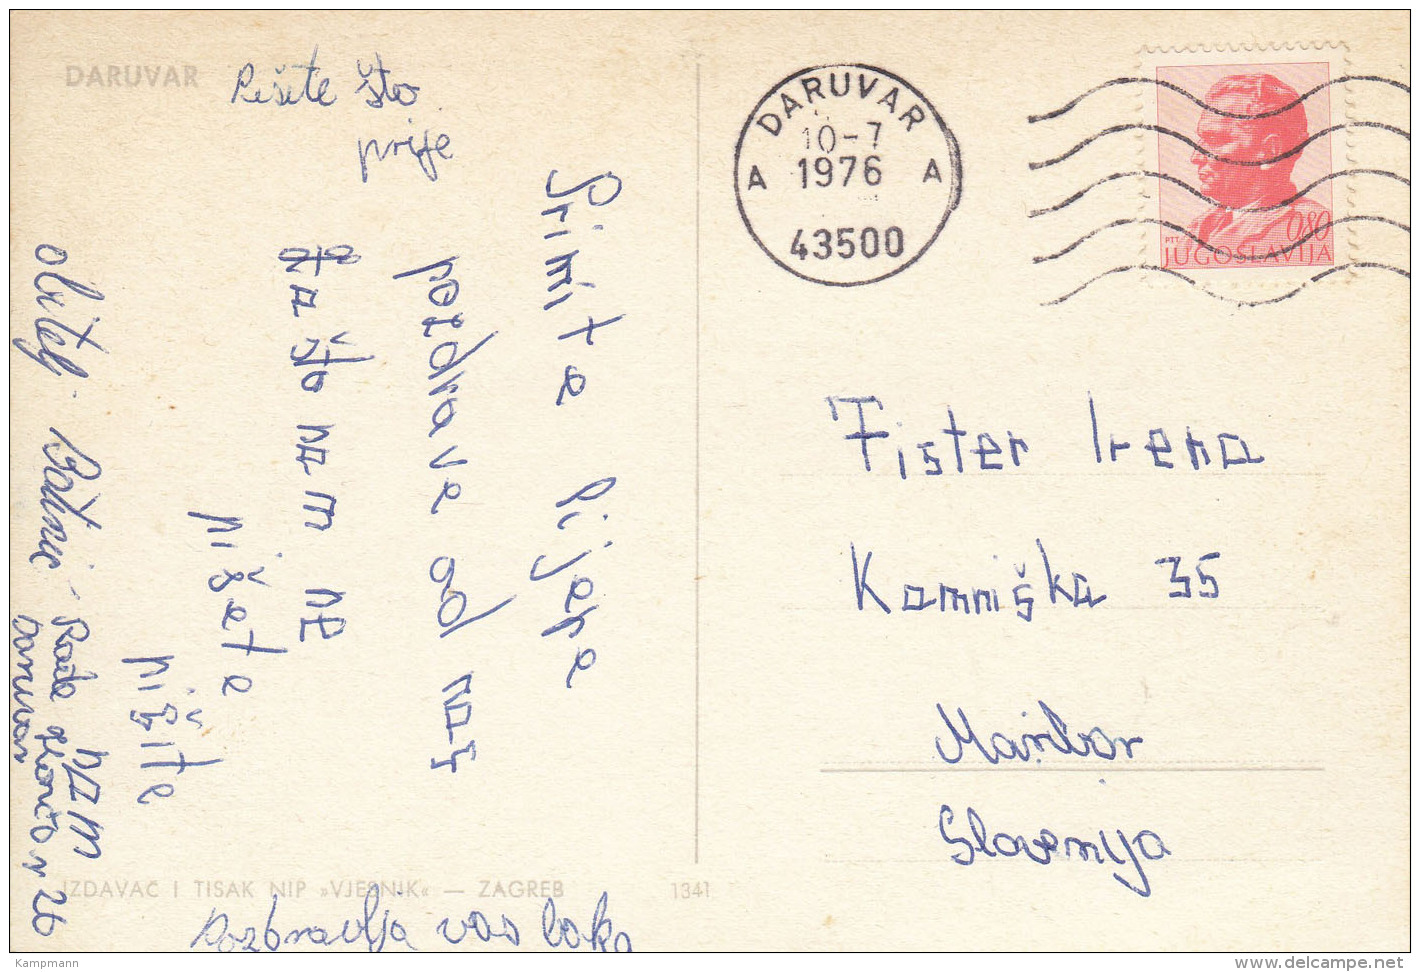 DARUVAR
Pišite što
prije
Primite lijepe
pozdrave od nas
Zašto nam ne
pišete
pišite
nam
obitelj
Rade Končar 26
Daruvar
Pozbravlja vas baka
IZDAVAČ I TISAK NIP »VJESNIK« — ZAGREB
1341
DARUVAR
10-7
1976
A A
43500
0,80
PTT
JUGOSLAVIJA
Fister Irena
Kamniška 35
Maribor
Slovenija
Kampmann
www.delcampe.net